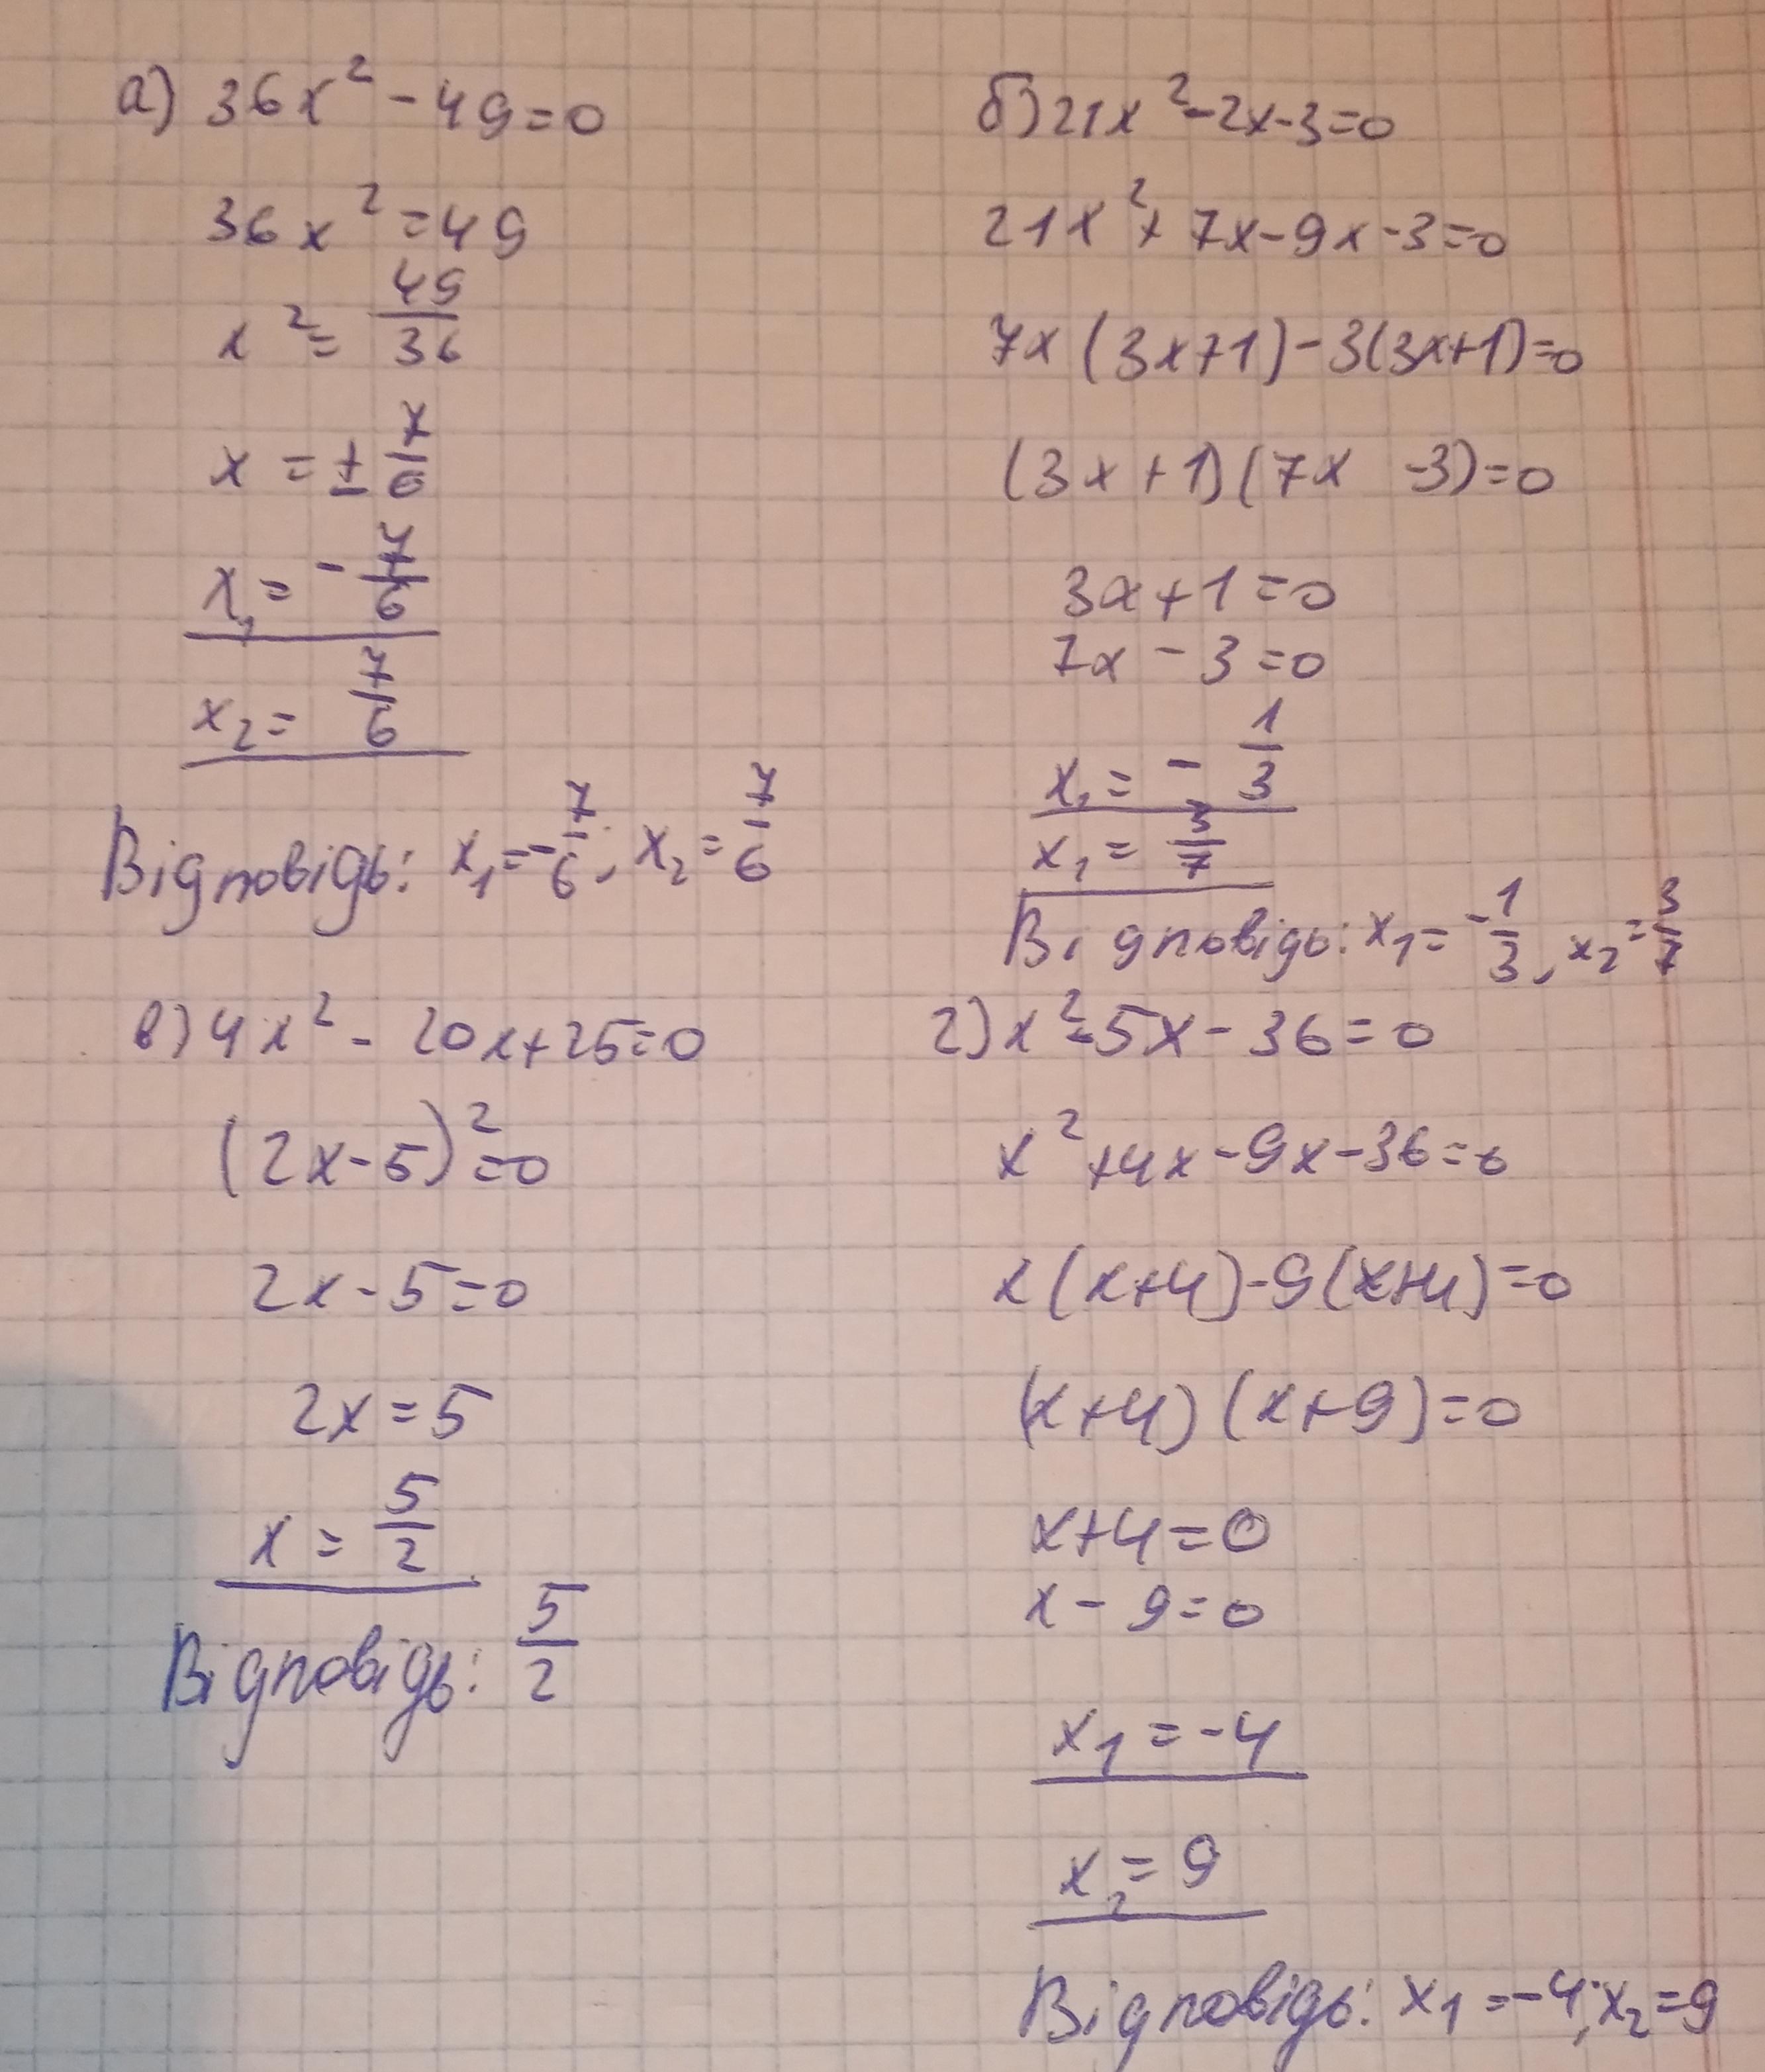 а) 36x² - 49 = 0
36x² = 49
x² = 49/36
x = ± 7/6
x₁ = - 7/6
x₂ = 7/6
Відповідь: x₁ = - 7/6, x₂ = 7/6
б) 21x² - 2x - 3 = 0
21x² + 7x - 9x - 3 = 0
7x (3x + 1) - 3(3x + 1) = 0
(3x + 1) (7x - 3) = 0
3x + 1 = 0
7x - 3 = 0
x₁ = - 1/3
x₁ = 3/7
Відповідь: x₁ = - 1/3, x₂ = 3/7
в) 4x² - 20x + 25 = 0
(2x - 5)² = 0
2x - 5 = 0
2x = 5
x = 5/2
Відповідь: 5/2
г) x² - 5x - 36 = 0
x² + 4x - 9x - 36 = 0
x (x + 4) - 9 (x + 4) = 0
(x + 4) (x + 9) = 0
x + 4 = 0
x - 9 = 0
x₁ = -4
x₂ = 9
Відповідь: x₁ = -4, x₂ = 9